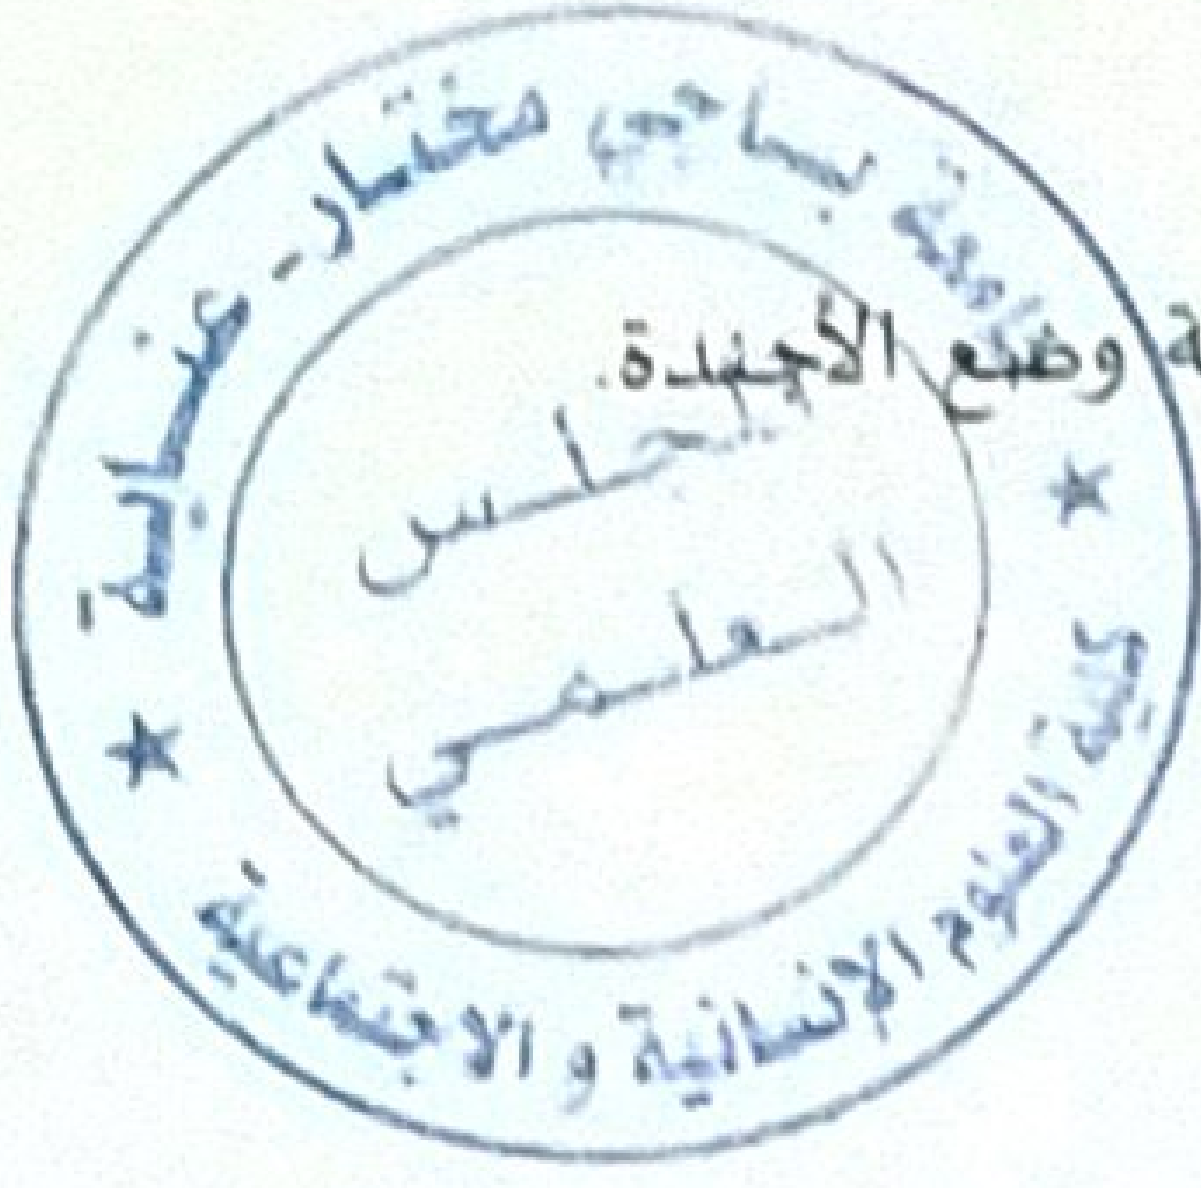 جامعة باجي مختار - عنابة -
ة وضع الأجندة.
المجلس
العلمي
كلية العلوم الإنسانية و الاجتماعية